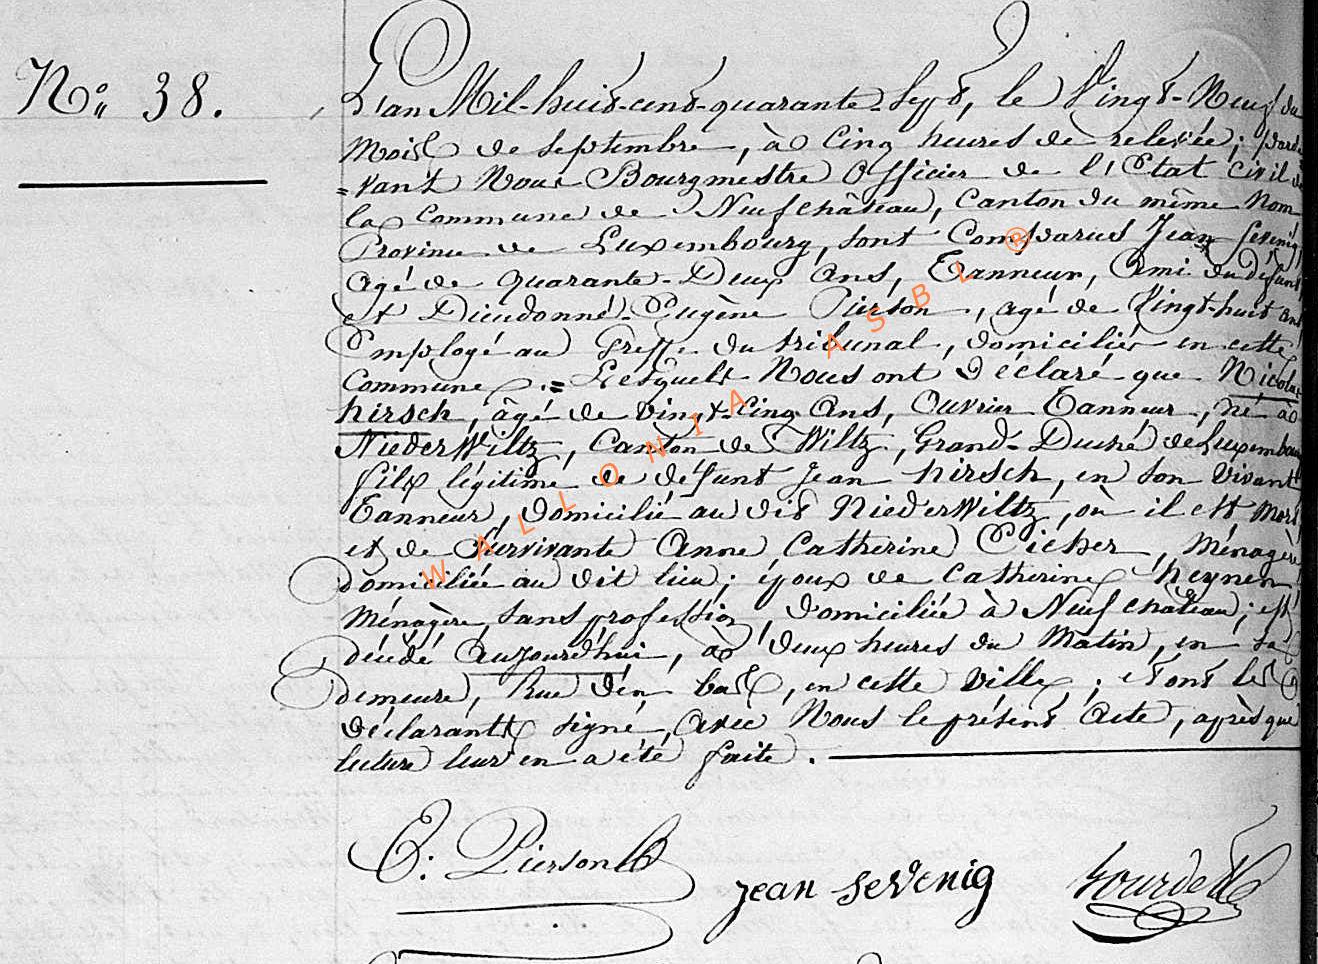 N° 38.
L'an Mil-huit-cent-quarante-Sept, le Vingt-Neuf du
Mois de Septembre, à Cinq heures de relevée; pardε
=vant Nous Bourgmestre Officier de l'Etat Civil de
la Commune de Neufchâteau, Canton du même Nom
Province de Luxembourg, sont Comparus Jean Sevenig,
agé de quarante-Deux Ans, Tanneur, Ami du défunt
et Dieudonné-Eugène Pierson, agé de Vingt-huit ans
Employé au Greffe du tribunal, domiciliés en cette
Commune. = Lesquels Nous ont Déclaré que Nicolas
hirsch, âgé de vingt-Cinq Ans, Ouvrier Tanneur, né à
NiederWiltz, Canton de Wiltz, Grand-Duché de Luxembourg
fils légitime de défunt Jean hirsch, en son Vivant
Tanneur, domicilié au dit NiederWiltz, où il est Mort
et de Survivante Anne Catherine Eicher, Ménagère
domiciliée au dit lieu; époux de Catherine heynen,
Ménagère, sans profession, Domiciliée à Neufchateau; est
décédé Aujourd'hui, à deux heures du Matin, en sa
demeure, Rue d'en bas, en cette Ville; et ont les
déclarants signé, Avec Nous le présent Acte, après que
lecture leur en a été faite.
E. Pierson
jean sevenig
Bourdelle
WALLONIA ASBL ®